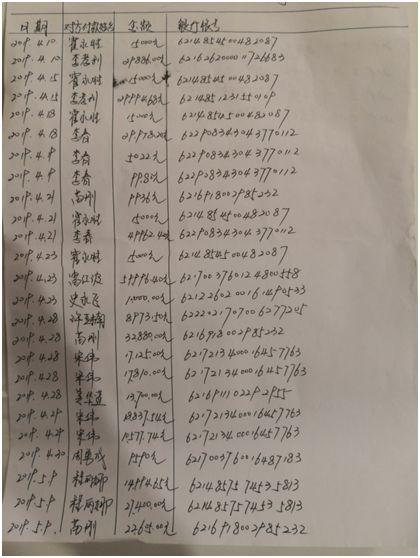 日期 对方付款姓名 金额 银行账号
2019.4.10 霍永胜 5000元 6214854500482087
2019.4.10 李春利 29886.00元 6216262000010726683
2019.4.15 霍永胜 5000元 6214854500482087
2019.4.15 李春利 29994.68元 6214851231550109
2019.4.18 霍永胜 5000元 6214854500482087
2019.4.18 李春 29978.20元 6229083430437 70112
2019.4.9 李春 5022元 6229083430437 70112
2019.4.9 李春 9980元 6229083430437 70112
2019.4.21 高刚 9936元 6216918002985232
2019.4.21 霍永胜 5000元 6214854500482087
2019.4.21 李春 49962.40元 6229083430437 70112
2019.4.23 霍永胜 5000元 6214854500482087
2019.4.23 59996.40元 6217003760124800558
2019.4.23 史永飞 10000.00元 6212260200161490533
2019.4.28 8973.50元 6222021707006277205
2019.4.28 高刚 32880.00元 6216918002985232
2019.4.28 宋伟 17125.00元 6217213400016457763
2019.4.28 宋伟 17810.00元 6217213400016457763
2019.4.28 13700.00元 6216911102292955
2019.4.29 宋伟 18837.54元 6217213400016457763
2019.4.29 宋伟 19577.74元 6217213400016457763
2019.4.30 周惠成 9590元 6217003760016487183
2019.5.9 程丽娜 14994.65元 6214857574535813
2019.5.9 程丽娜 27400.00元 6214857574535813
2019.5.9. 高刚 22605.00元 6216918002985232